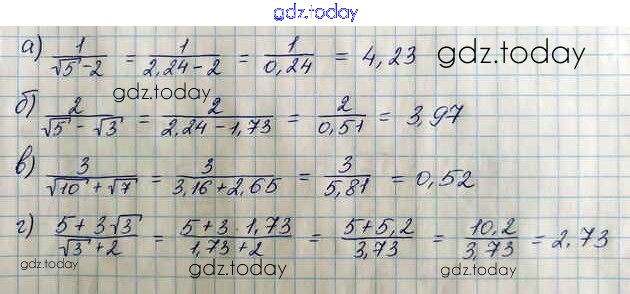 gdz.today
а) 1/(√5-2) = 1/(2,24-2) = 1/0,24 = 4,23 gdz.today
gdz.today
б) 2/(√5-√3) = 2/(2,24-1,73) = 2/0,51 = 3,97
в) 3/(√10+√7) = 3/(3,16+2,65) = 3/5,81 = 0,52
г) (5+3√3)/(√3+2) = (5+3·1,73)/(1,73+2) = (5+5,2)/3,73 = 10,2/3,73 = 2,73
gdz.today gdz.today gdz.today